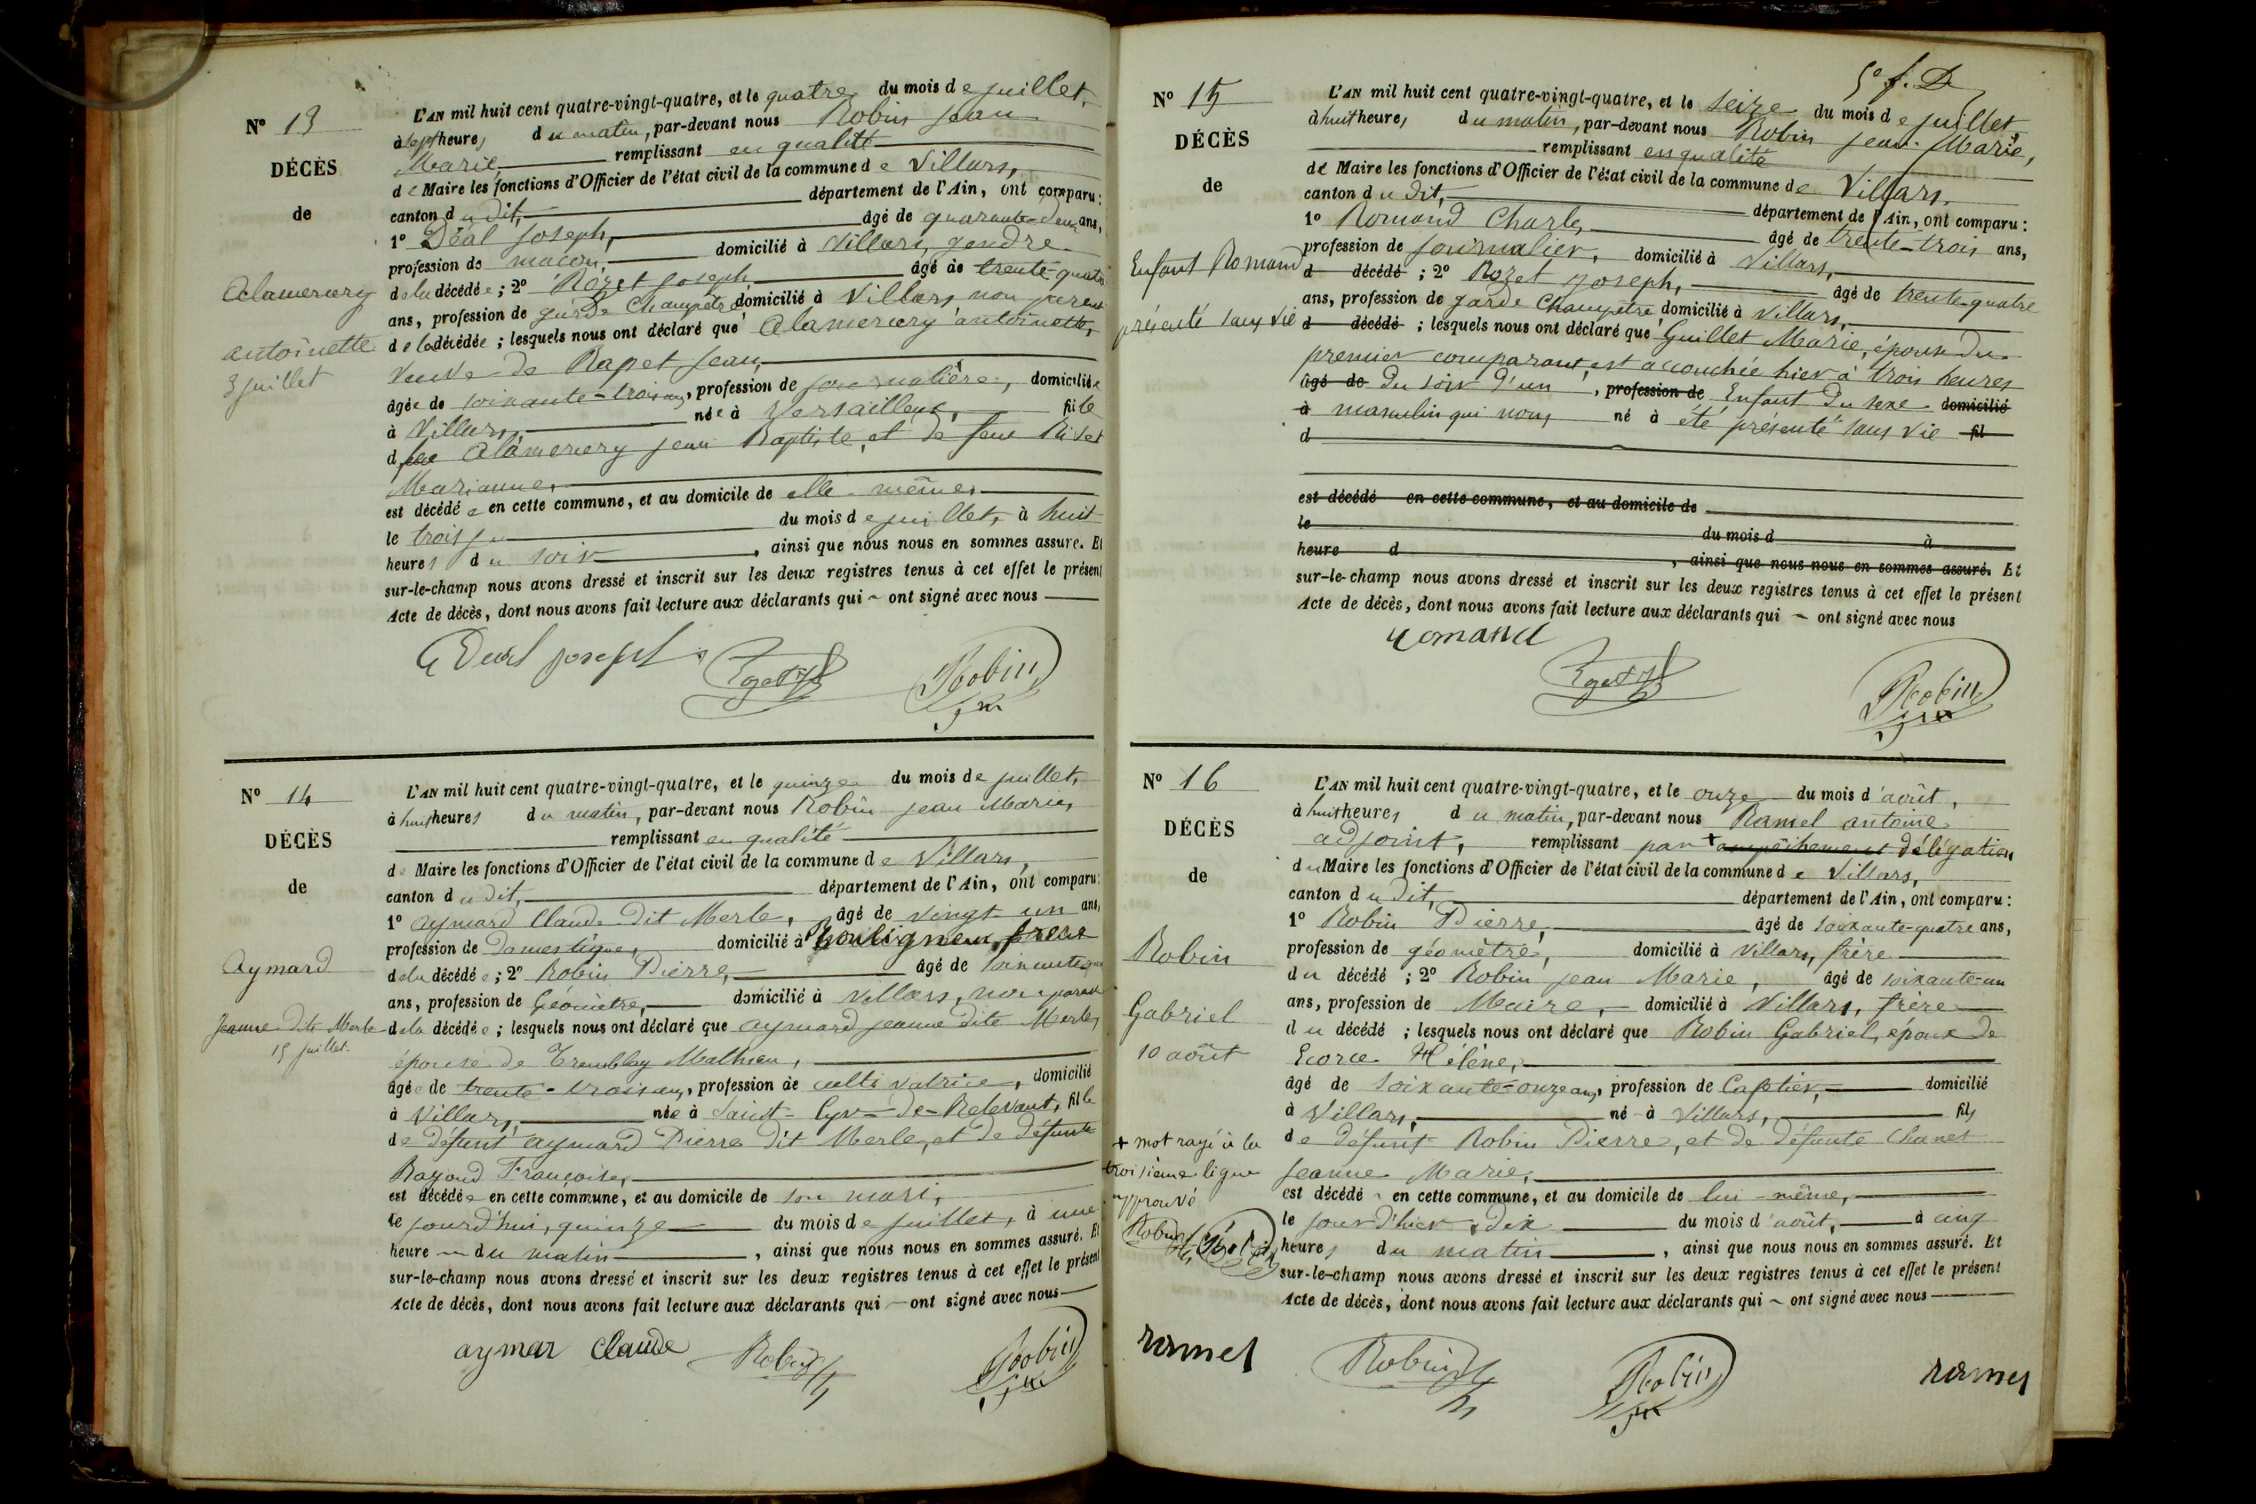 N° 13
DÉCÈS
de
Alamercery
antoinette
3 juillet
L'AN mil huit cent quatre-vingt-quatre, et le quatre du mois de juillet,
à sept heures du matin, par-devant nous Robin Jean
Marie, remplissant en qualité
de Maire les fonctions d'Officier de l'état civil de la commune de Villars,
canton du dit, département de l'Ain, ont comparu :
1° Déal Joseph, âgé de quarante-deux ans,
profession de maçon, domicilié à Villars, gendre
de la décédée ; 2° Rozet Joseph âgé de trente-quatre
ans, profession de garde Champêtre domicilié à Villars, non parent
de la décédée ; lesquels nous ont déclaré que Alamercery antoinette,
veuve de Rapet Jean,
âgée de soixante-trois ans, profession de journalière, domiciliée
à Villars, née à Versailleux, fille
de feu Alamercery jean Baptiste, et de feue
Marianne,
est décédée en cette commune, et au domicile de elle-même,
le trois du mois de juillet, à huit
heures du soir, ainsi que nous nous en sommes assuré. Et
sur-le-champ nous avons dressé et inscrit sur les deux registres tenus à cet effet le présent
Acte de décès, dont nous avons fait lecture aux déclarants qui ont signé avec nous
Deal joseph Rozet Robin
N° 14
DÉCÈS
de
Aymard
Jeanne dite Merle
15 juillet
L'AN mil huit cent quatre-vingt-quatre, et le quinze du mois de juillet,
à huit heures du matin, par-devant nous Robin jean Marie,
remplissant en qualité
de Maire les fonctions d'Officier de l'état civil de la commune de Villars,
canton du dit, département de l'Ain, ont comparu :
1° aymard Claude dit Merle, âgé de vingt-un ans,
profession de domestique, domicilié à Bouligneux, frère
de la décédée ; 2° Robin Pierre, âgé de
ans, profession de Géomètre, domicilié à Villars, non parent
de la décédée ; lesquels nous ont déclaré que aymard jeanne dite Merle,
épouse de Tremblay Mathieu,
âgée de trente-trois ans, profession de cultivatrice, domicilié
à Villars, née à Saint-Cyr-de-Relevant, fille
de défunt aymard Pierre dit Merle, et de défunte
Rayond Françoise,
est décédée en cette commune, et au domicile de son mari,
le jourd'hui, quinze du mois de juillet, à une
heure du matin, ainsi que nous nous en sommes assuré. Et
sur-le-champ nous avons dressé et inscrit sur les deux registres tenus à cet effet le présent
Acte de décès, dont nous avons fait lecture aux déclarants qui ont signé avec nous
aymar Claude Robin Robin
5e f. D
N° 15
DÉCÈS
de
Enfant Romand
présenté sans vie
L'AN mil huit cent quatre-vingt-quatre, et le seize du mois de juillet
à huit heures du matin, par-devant nous Robin jean-Marie,
remplissant en qualité
de Maire les fonctions d'Officier de l'état civil de la commune de Villars,
canton du dit, département de l'Ain, ont comparu :
1° Romand Charles, âgé de trente-trois ans,
profession de journalier, domicilié à Villars,
d décédé ; 2° Rozet joseph, âgé de trente-quatre
ans, profession de garde Champêtre domicilié à Villars,
d décédé ; lesquels nous ont déclaré que Guillet Marie, épouse du
premier comparant, est accouchée hier à trois heures
âgé de du soir d'un, profession de Enfant du sexe domicilié
à masculin qui nous né à été présenté sans vie fil
d
est décédé en cette commune, et au domicile de
le du mois d à
heure d, ainsi que nous nous en sommes assuré. Et
sur-le-champ nous avons dressé et inscrit sur les deux registres tenus à cet effet le présent
Acte de décès, dont nous avons fait lecture aux déclarants qui ont signé avec nous
romand Rozet Robin
N° 16
DÉCÈS
de
Robin
Gabriel
10 août
+ mot rayé à la
troisième ligne
approuvé
Robin Robin
L'AN mil huit cent quatre-vingt-quatre, et le onze du mois d'août,
à huit heures du matin, par-devant nous Ramel antoine
adjoint, remplissant par + empêchement délégation
du Maire les fonctions d'Officier de l'état civil de la commune de Villars,
canton du dit, département de l'Ain, ont comparu :
1° Robin Pierre, âgé de soixante-quatre ans,
profession de géomètre, domicilié à Villars, frère
du décédé ; 2° Robin jean Marie, âgé de soixante-un
ans, profession de Maire, domicilié à Villars, frère
du décédé ; lesquels nous ont déclaré que Robin Gabriel, époux de
Ecorce Hélène,
âgé de soixante-onze ans, profession de Cafetier, domicilié
à Villars, né à Villars, fils
de défunt Robin Pierre, et de défunte Chanet
Jeanne Marie,
est décédé en cette commune, et au domicile de lui-même,
le jour d'hier, dix du mois d'août, à cinq
heures du matin, ainsi que nous nous en sommes assuré. Et
sur-le-champ nous avons dressé et inscrit sur les deux registres tenus à cet effet le présent
Acte de décès, dont nous avons fait lecture aux déclarants qui ont signé avec nous
ramel Robin Robin ramel